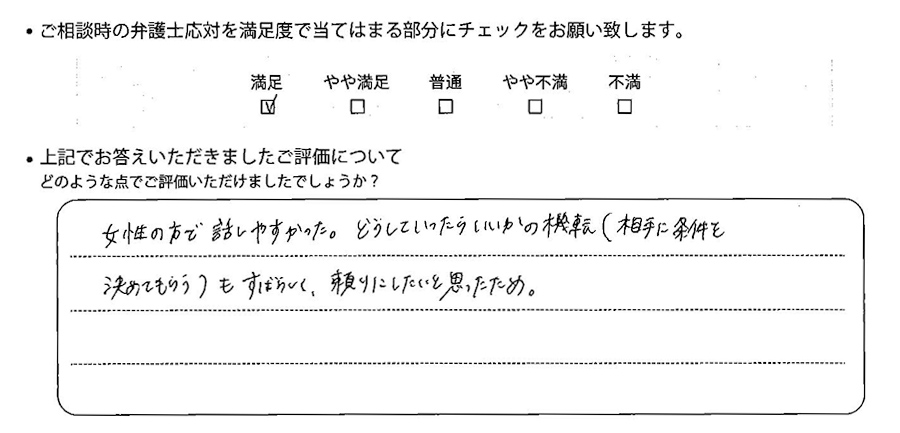 ・ご相談時の弁護士応対を満足度で当てはまる部分にチェックをお願い致します。
満足 やや満足 普通 やや不満 不満
☑ □ □ □ □
・上記でお答えいただきましたご評価について
どのような点でご評価いただけましたでしょうか？
女性の方で話しやすかった。どうしていったらいいかの機転(相手に条件を
決めてもらう)もすばらしく、頼りにしたいと思ったため。